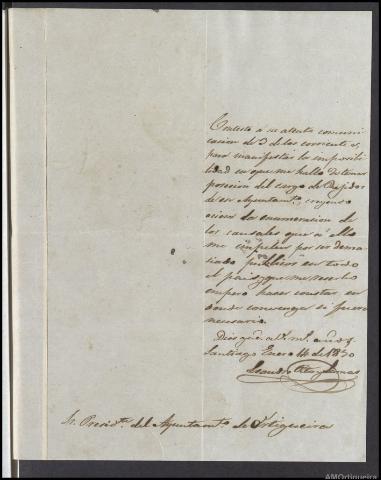 Contesto á su atenta comuni
cacion de 3 de los corrientes,
para manifestar la imposibi
lidad en que me hallo de tomar
posesion del cargo de Regidor
de ese Ayuntamto creyendo
la enumeracion de
las causales que á ello
me impelen por ser dema
siado publicas en todo
el pais, que me
empero hacer constar en
donde convenga si fuere
necesario.
Dios gue. á V. ms. años.
Santiago Enero 14 de 1850
Sr. Presidte. del Ayuntamto. de Ortigueira
AMOrtigueira